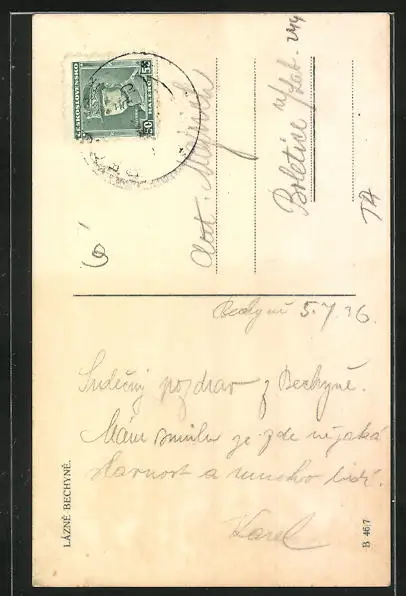 ČESKOSLOVENSKO
50
HALÉŘŮ
Boletice n/Lab.
Bechyně 5.7.36.
Srdečný pozdrav z Bechyně.
Mám smůlu je zde nějaká
slavnost a mnoho lidí.
Karel
LÁZNĚ BECHYNĚ.
B 46/7